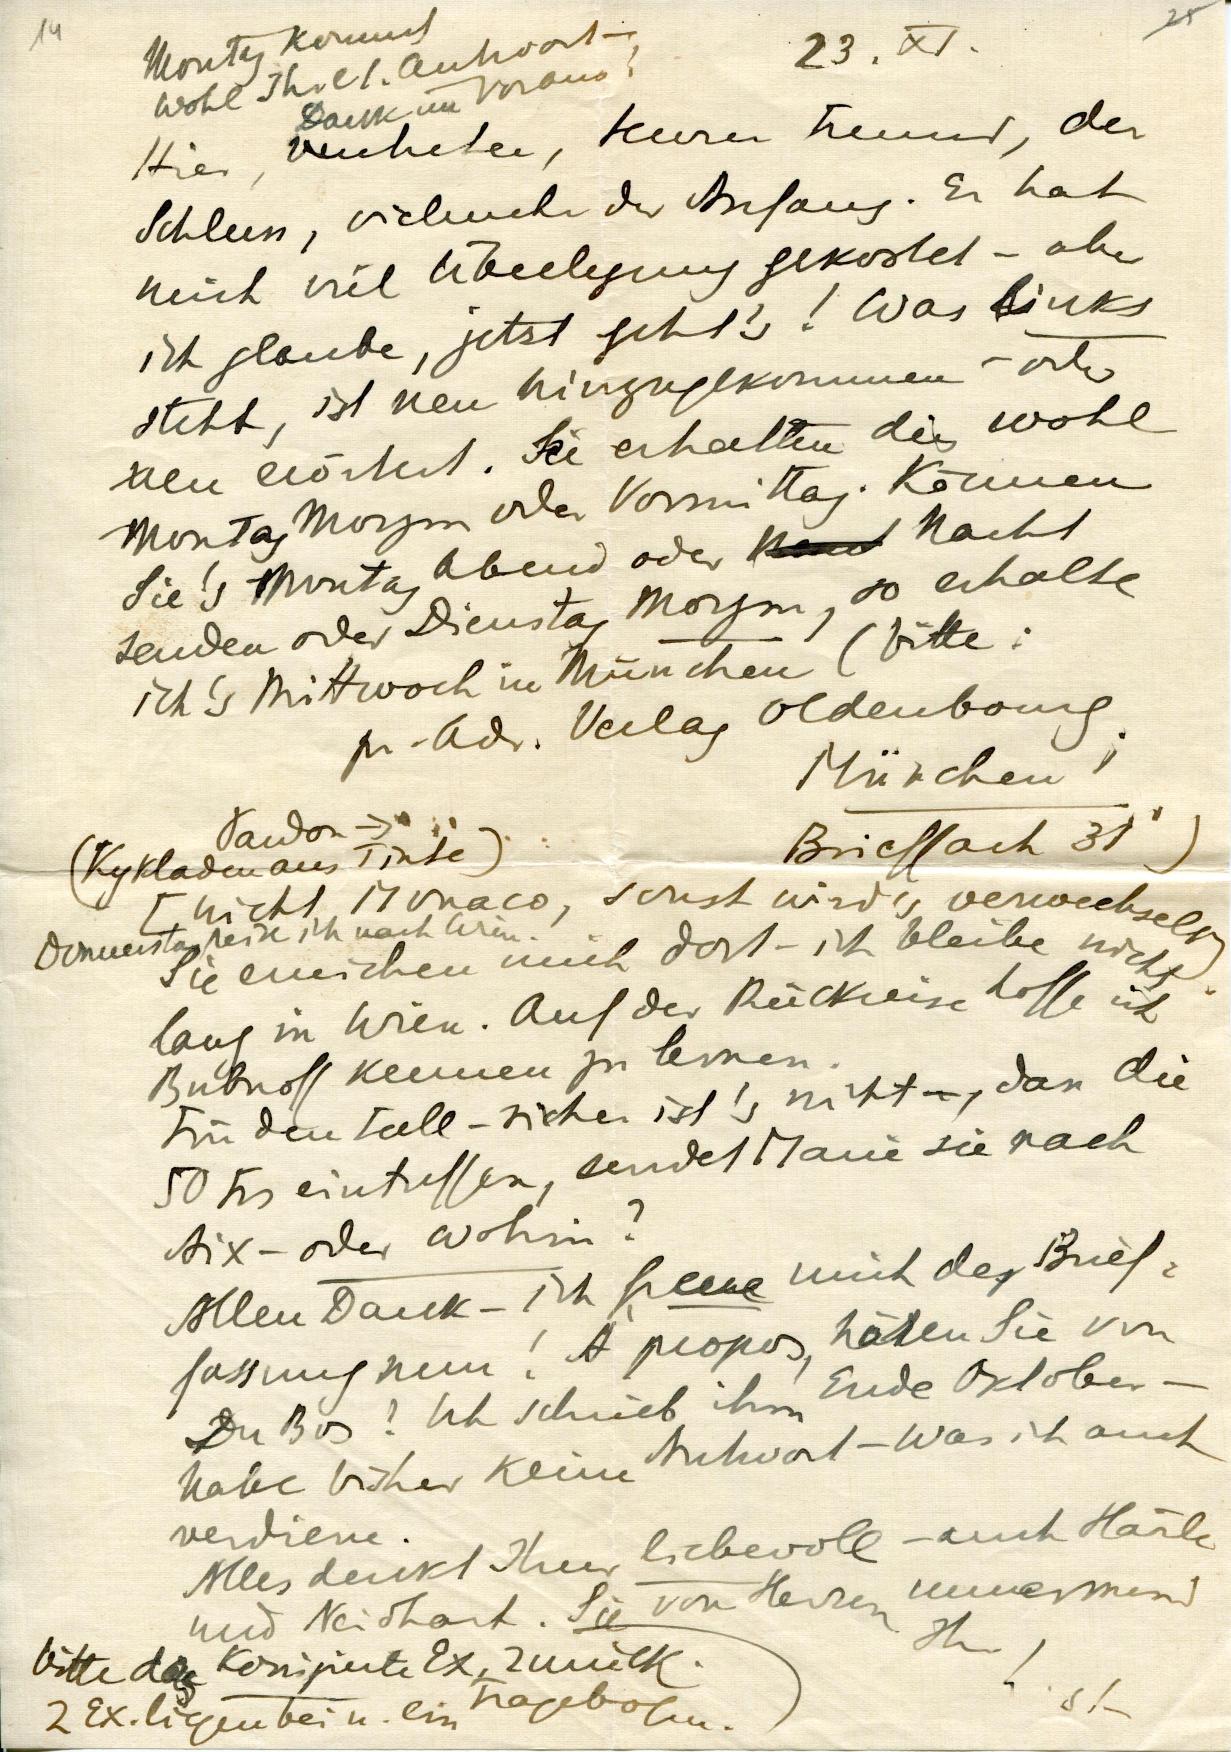 14
25
Montag kommt
wohl Ihre l. Antwort –
Dank im Voraus!
23. XI.
Hier, verehrter, teurer Freund, der
Schluss, vielmehr der Anfang. Er hat
mich viel Überlegung gekostet – aber
ich glaube, jetzt geht's! Was links
steht, ist neu hinzugekommen – oder
neu erörtert. Sie erhalten dies wohl
Montag Morgen oder Vormittag. Können
Sie's Montag Abend oder Nacht
senden oder Dienstag Morgen, so erhalte
ich's Mittwoch in München (bitte:
pr. Adr. Verlag Oldenbourg
München!
Brieffach 31)
Pardon →
(Kykladen aus Tinte)
[nicht Monaco, sonst wird's verwechselt]
Donnerstag reise ich nach Wien.
Sie erreichen mich dort – ich bleibe nicht
lang in Wien. Auf der Rückreise hoffe ich
Bubnoff kennen zu lernen.
Für den Fall – sicher ist's nicht –, dass die
50 Frs eintreffen, sendet Marie sie nach
Aix – oder wohin?
Allen Dank – ich freue mich der Brief-
fassung nun! À propos, hörten Sie von
Du Bos? Ich schrieb ihm Ende Oktober –
habe bisher keine Antwort – was ich auch
verdiene.
Alles denkt Ihrer liebevoll – auch
und Neidhart. Sie von Herzen umarmend
Ihr
bitte das Korrigierte Ex. zurück.
2 Ex. liegen bei u. ein Fragebogen.